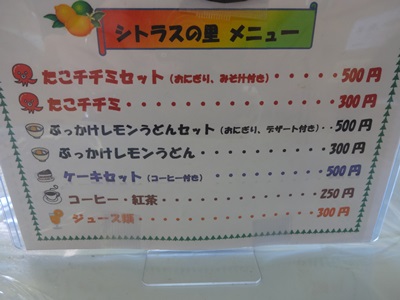 シトラスの里 メニュー
たこチヂミセット（おにぎり、みそ汁付き）・・・・・・500円
たこチヂミ・・・・・・・・・・・・・・・300円
ぶっかけレモンうどんセット（おにぎり、デザート付き）・・500円
ぶっかけレモンうどん・・・・・・・・・300円
ケーキセット（コーヒー付き）・・・・・・・・・500円
コーヒー・紅茶・・・・・・・・・・・・250円
ジュース類・・・・・・・・・・・・・300円